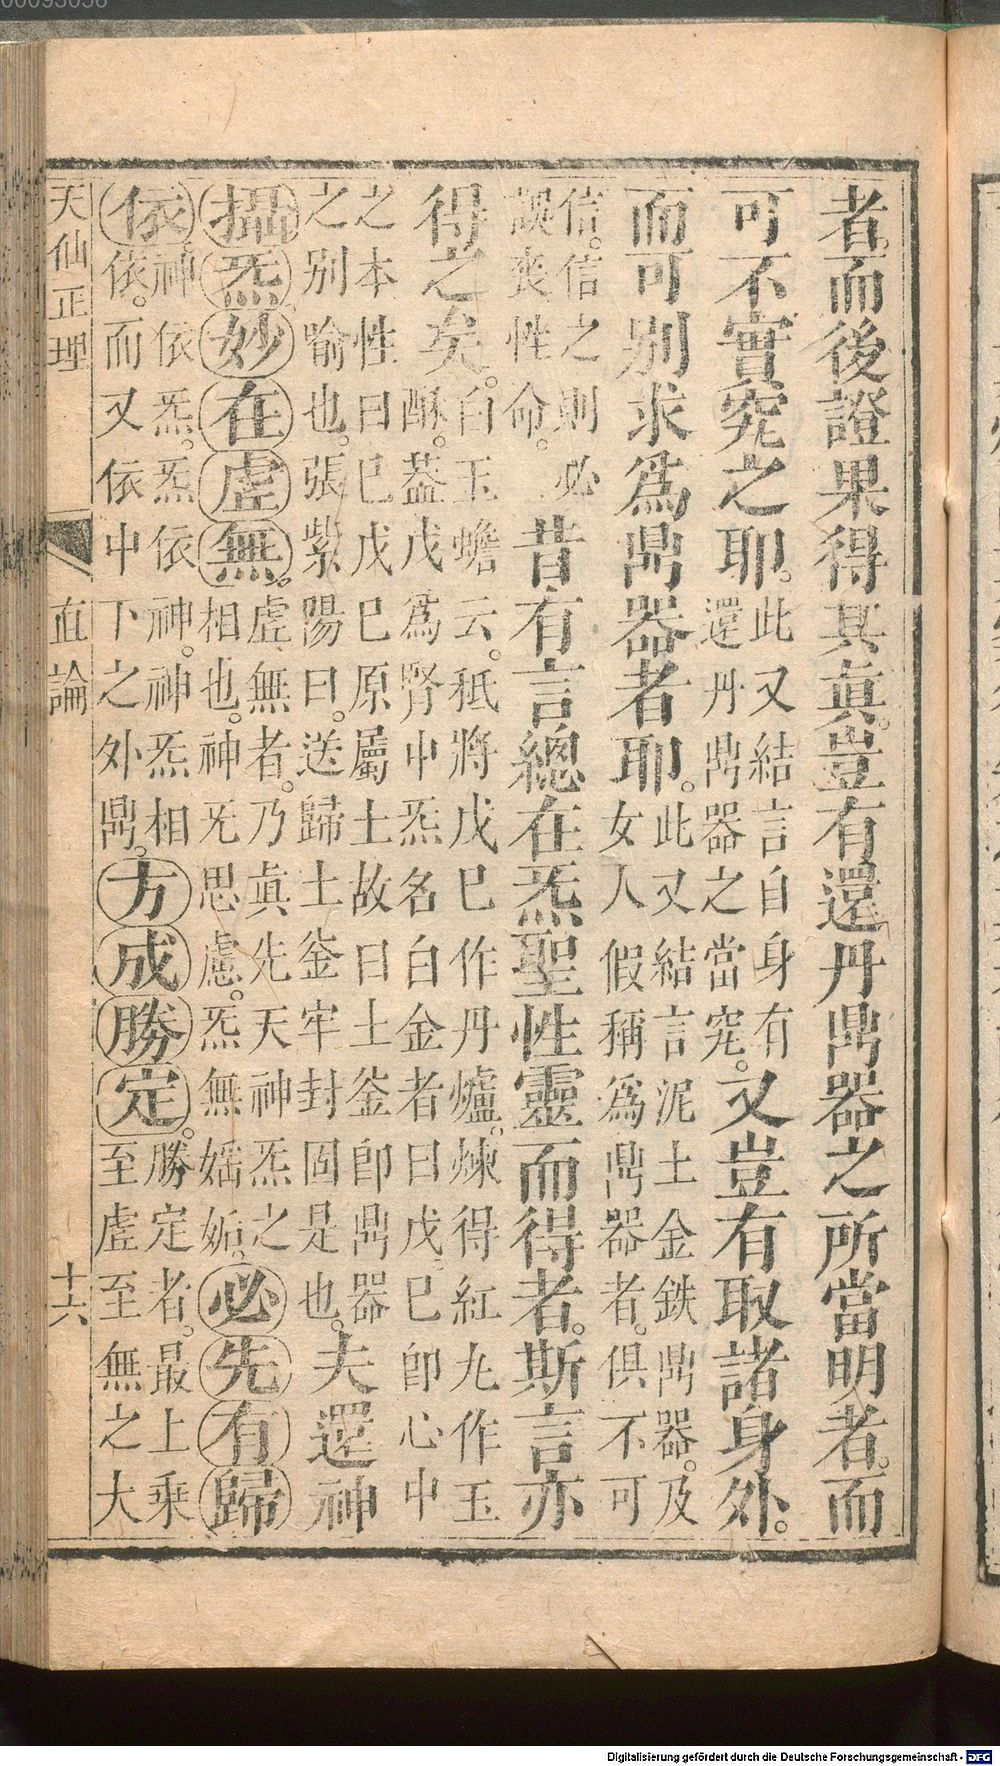 者。而後證果得其真。豈有還丹鼎器之所當明者。而
可不實究之耶。
此又結言自身有
還丹鼎器之當究。
又豈有取諸身外。
而可別求爲鼎器者耶。
此又結言泥土金鉄鼎器。及
女人假稱爲鼎器者。俱不可
信。信之則必
誤喪性命。
昔有言總在炁聖性靈而得者。斯言亦
得之矣。
白玉蟾云。秪將戊巳作丹爐。煉得紅丸作玉
酥。葢戊爲腎中炁名白金者曰戊。巳卽心中
之本性曰巳戊巳原屬土故曰土釡卽鼎器
之別喻也。張紫陽曰。送歸土釡牢封固是也。
夫還神
攝炁妙在虛無。
虛無者。乃眞先天神炁之
相也。神旡思慮。炁無婬妬。
必先有歸
依
神依炁。炁依神。神炁相
依。而又依中下之外鼎。
方成勝定。
勝定者。最上乘
至虛至無之大
天仙正理 直論 十六
Digitalisierung gefördert durch die Deutsche Forschungsgemeinschaft - DFG